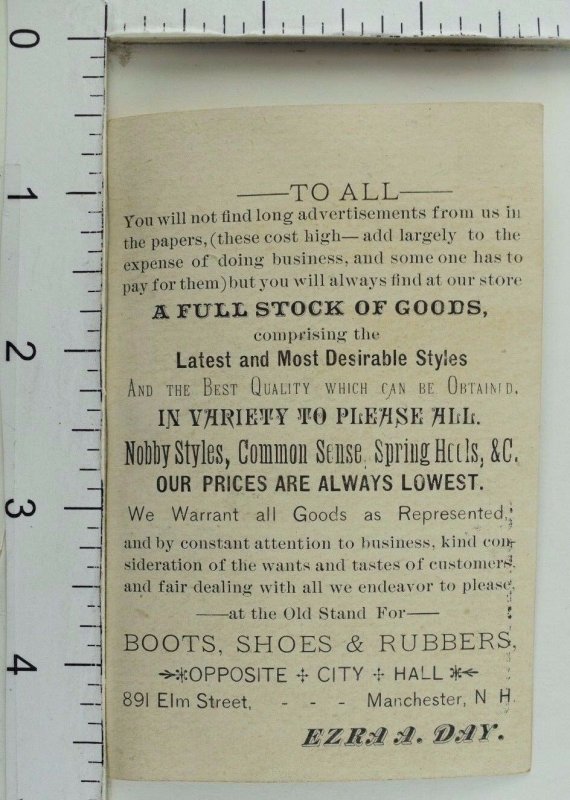 0
1
2
3
4
TO ALL
You will not find long advertisements from us in
the papers, (these cost high—add largely to the
expense of doing business, and some one has to
pay for them) but you will always find at our store
A FULL STOCK OF GOODS,
comprising the
Latest and Most Desirable Styles
AND THE BEST QUALITY WHICH CAN BE OBTAINED.
IN VARIETY TO PLEASE ALL.
Nobby Styles, Common Sense, Spring Heels, &C.
OUR PRICES ARE ALWAYS LOWEST.
We Warrant all Goods as Represented,
and by constant attention to business, kind con-
sideration of the wants and tastes of customers,
and fair dealing with all we endeavor to please,
—at the Old Stand For—
BOOTS, SHOES & RUBBERS,
OPPOSITE ÷ CITY ÷ HALL
891 Elm Street, - - - Manchester, N H.
EZRA A. DAY.